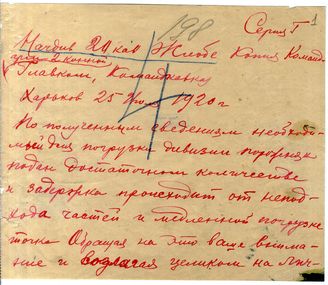 198 Серия Г 1
Начдив 2й кав Жлобе Копия Команд
2 конной
Главком, Командкавказ
Харьков 25 1920 г
По полученным сведениям необходи-
мый для погрузки дивизии порожняк
подан достаточном количестве
и задержка происходит от непод-
хода частей и медленной погрузке
точка Обращая на это ваше внима-
ние и возлагая целиком на лич-